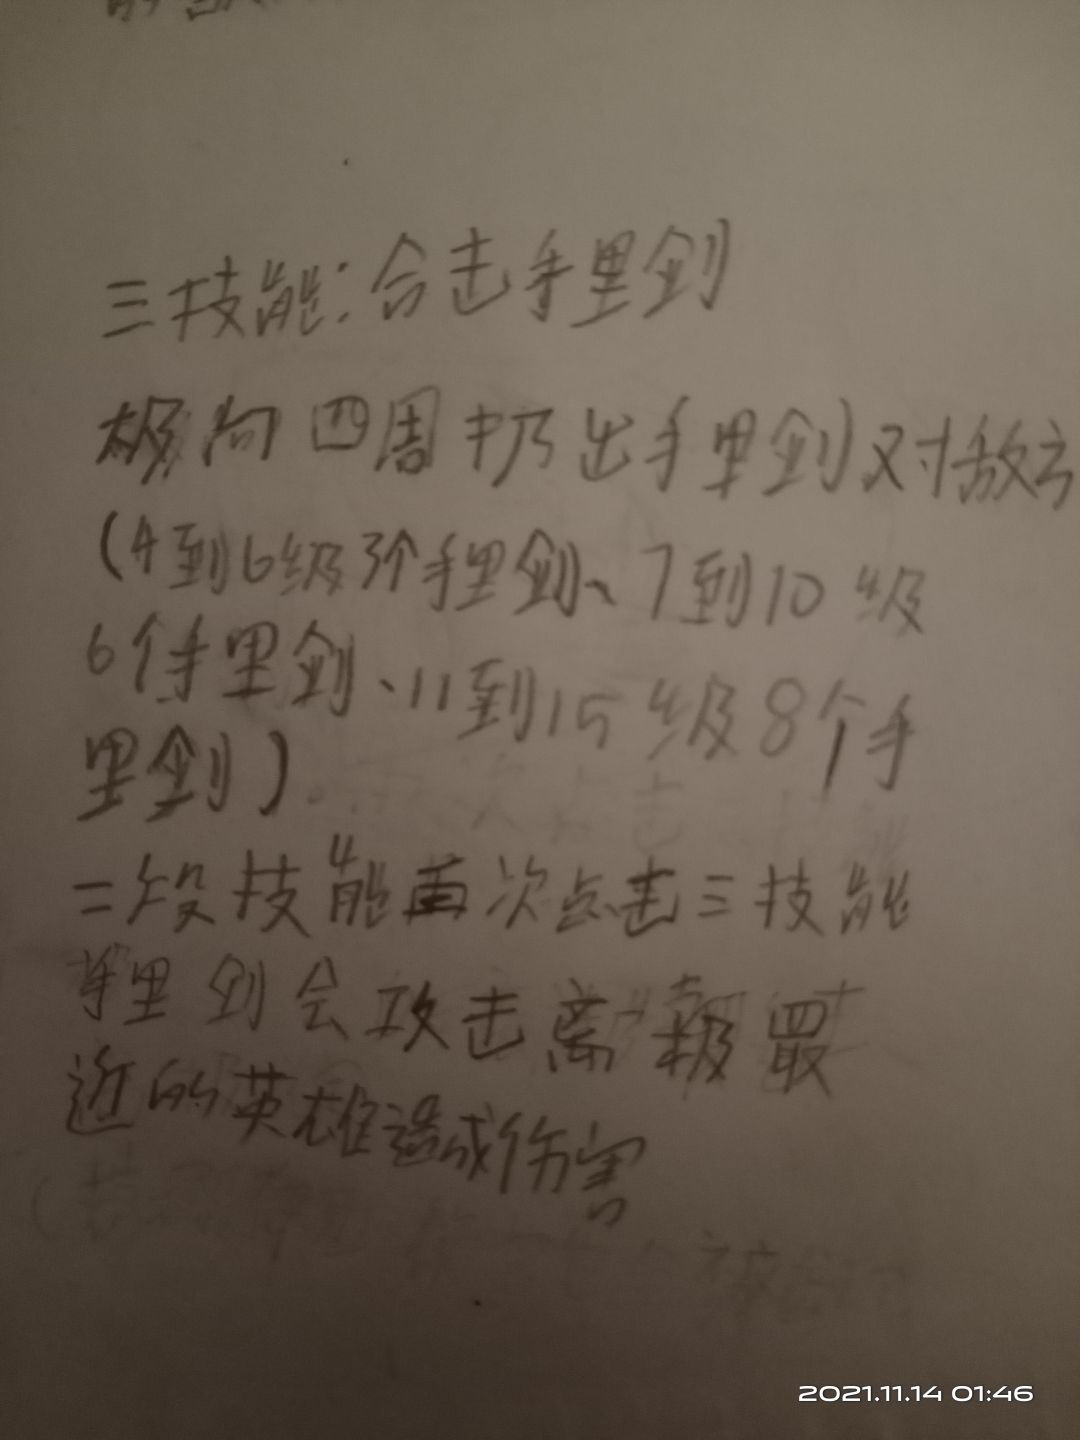 三技能：合击手里剑
极向四周扔出手里剑对敌方
(4到6级3个手里剑、7到10级
6个手里剑、11到15级8个手
里剑)
二段技能再次点击三技能
手里剑会攻击离极最
近的英雄造成伤害
2021.11.14 01:46